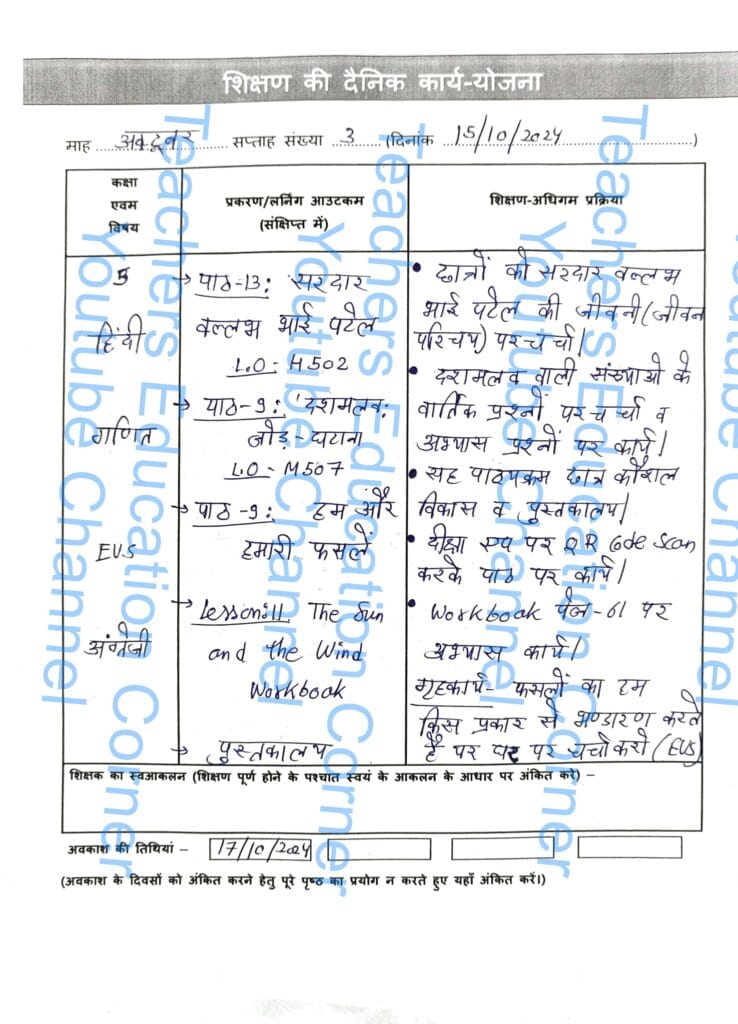 शिक्षण की दैनिक कार्य-योजना
माह अक्टूबर सप्ताह संख्या 3 (दिनांक 15/10/2024)
कक्षा
एवम
विषय
प्रकरण/लर्निंग आउटकम
(संक्षिप्त में)
शिक्षण-अधिगम प्रक्रिया
5
हिंदी
→ पाठ-13: सरदार
वल्लभ भाई पटेल
L.O- H502
• छात्रों को सरदार वल्लभ
भाई पटेल की जीवनी (जीवन
परिचय) पर चर्चा।
गणित
→ पाठ-9: 'दशमलव:
जोड़-घटाना
L.O- M507
• दशमलव वाली संख्याओ के
वार्तिक प्रश्नों पर चर्चा व
अभ्यास प्रश्नों पर कार्य।
• सह पाठ्यक्रम छात्र कौशल
विकास व पुस्तकालय।
EVS
→ पाठ-9: हम और
हमारी फसलें
• दीक्षा एप पर QR Code Scan
करके पाठ पर कार्य।
अंग्रेजी
→ Lesson:11 The Sun
and the Wind
Workbook
• Workbook पेज-61 पर
अभ्यास कार्य।
→ पुस्तकालय
गृहकार्य- फसलों का हम
किस प्रकार से भण्डारण करते
हैं पर घर पर चर्चा करो (EVS)
शिक्षक का स्वआकलन (शिक्षण पूर्ण होने के पश्चात स्वयं के आकलन के आधार पर अंकित करें) –
अवकाश की तिथियां – 17/10/2024
(अवकाश के दिवसों को अंकित करने हेतु पूरे पृष्ठ का प्रयोग न करते हुए यहाँ अंकित करें।)
Teachers Education Corner
Youtube Channel
Teachers Education Corner
Youtube Channel
Teachers Education Corner
Youtube Channel